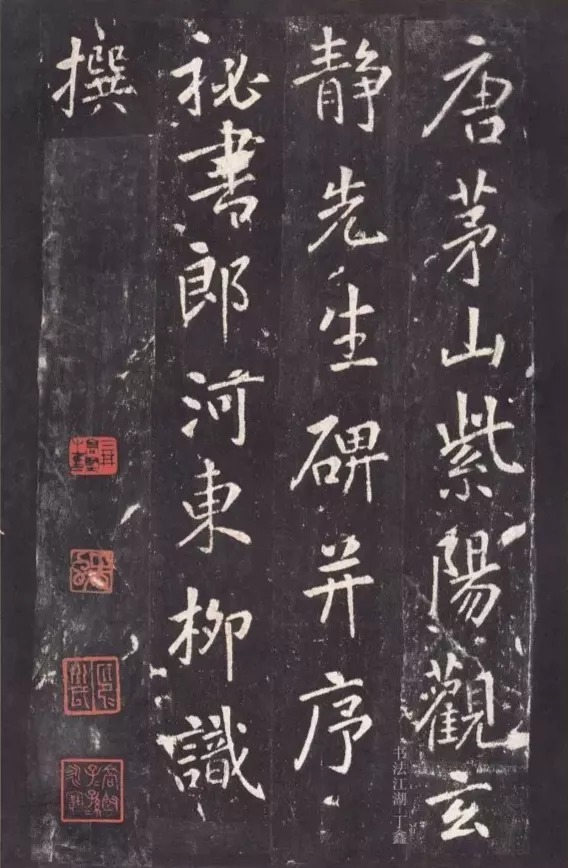 唐茅山紫陽觀玄
靜先生碑并序
秘書郎河東柳識
撰
书法江湖 丁鑫